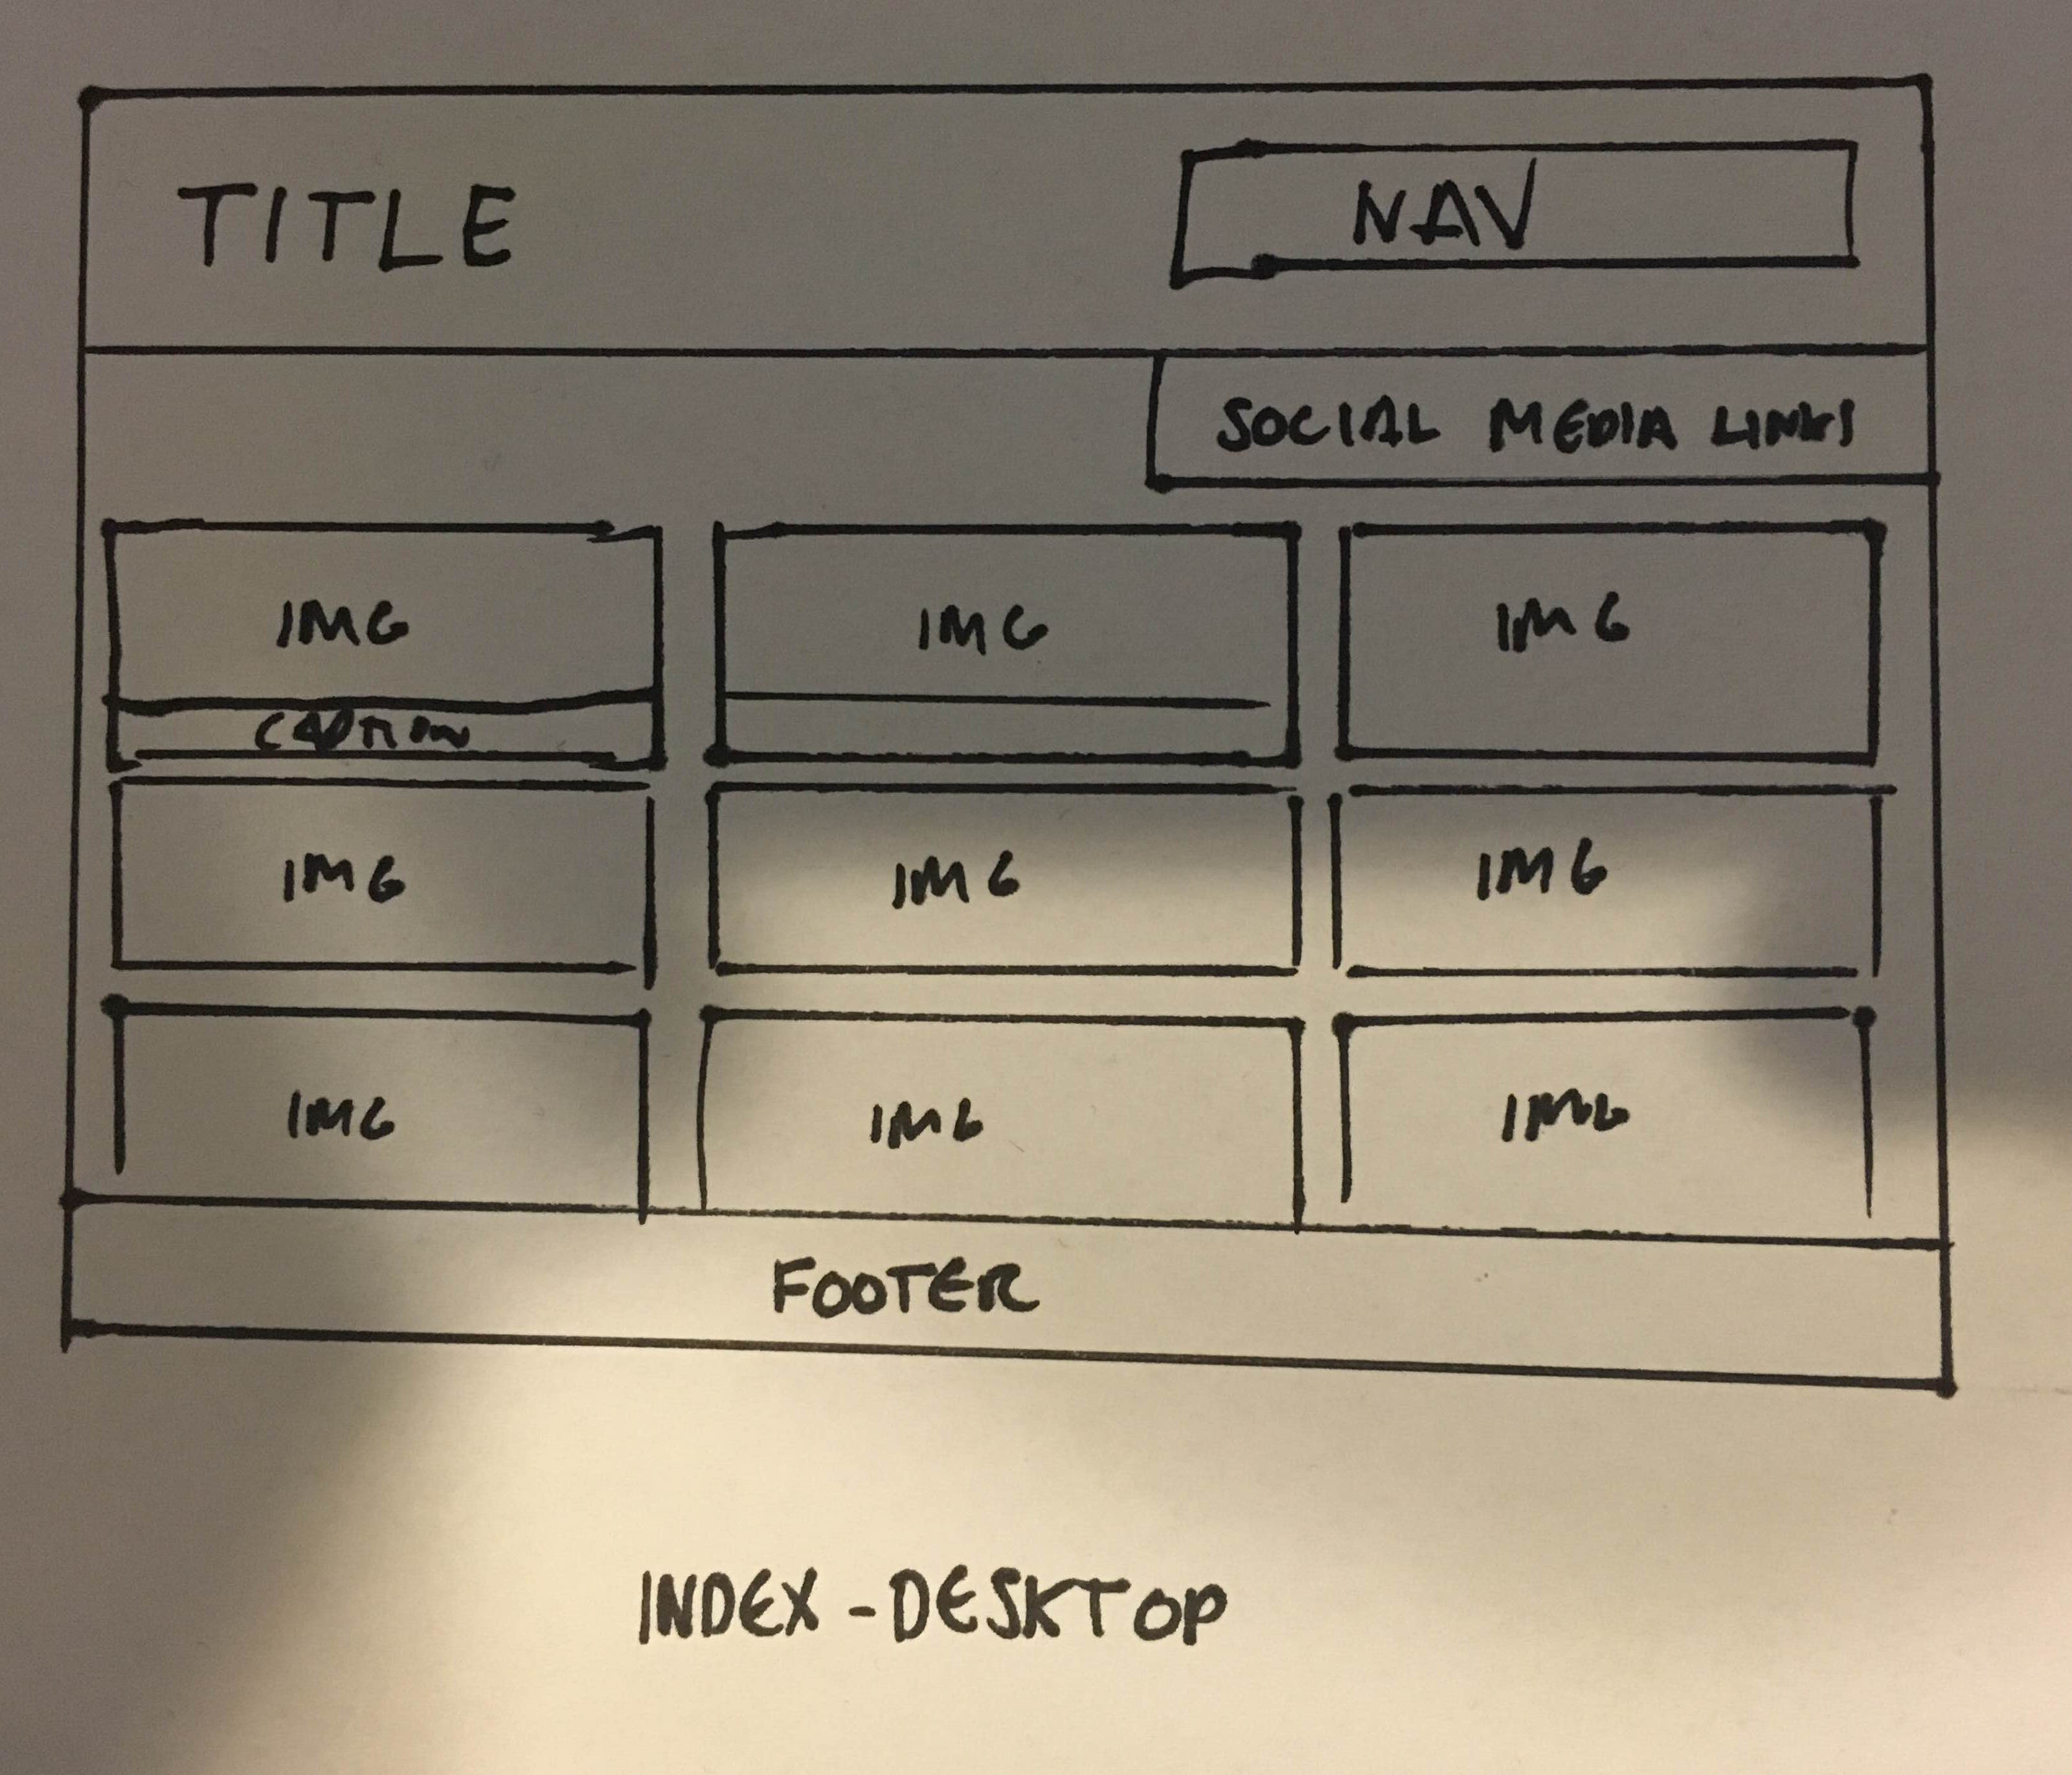 TITLE
NAV
SOCIAL MEDIA LINKS
IMG IMG IMG
CAPTION
IMG IMG IMG
IMG IMG IMG
FOOTER
INDEX - DESKTOP